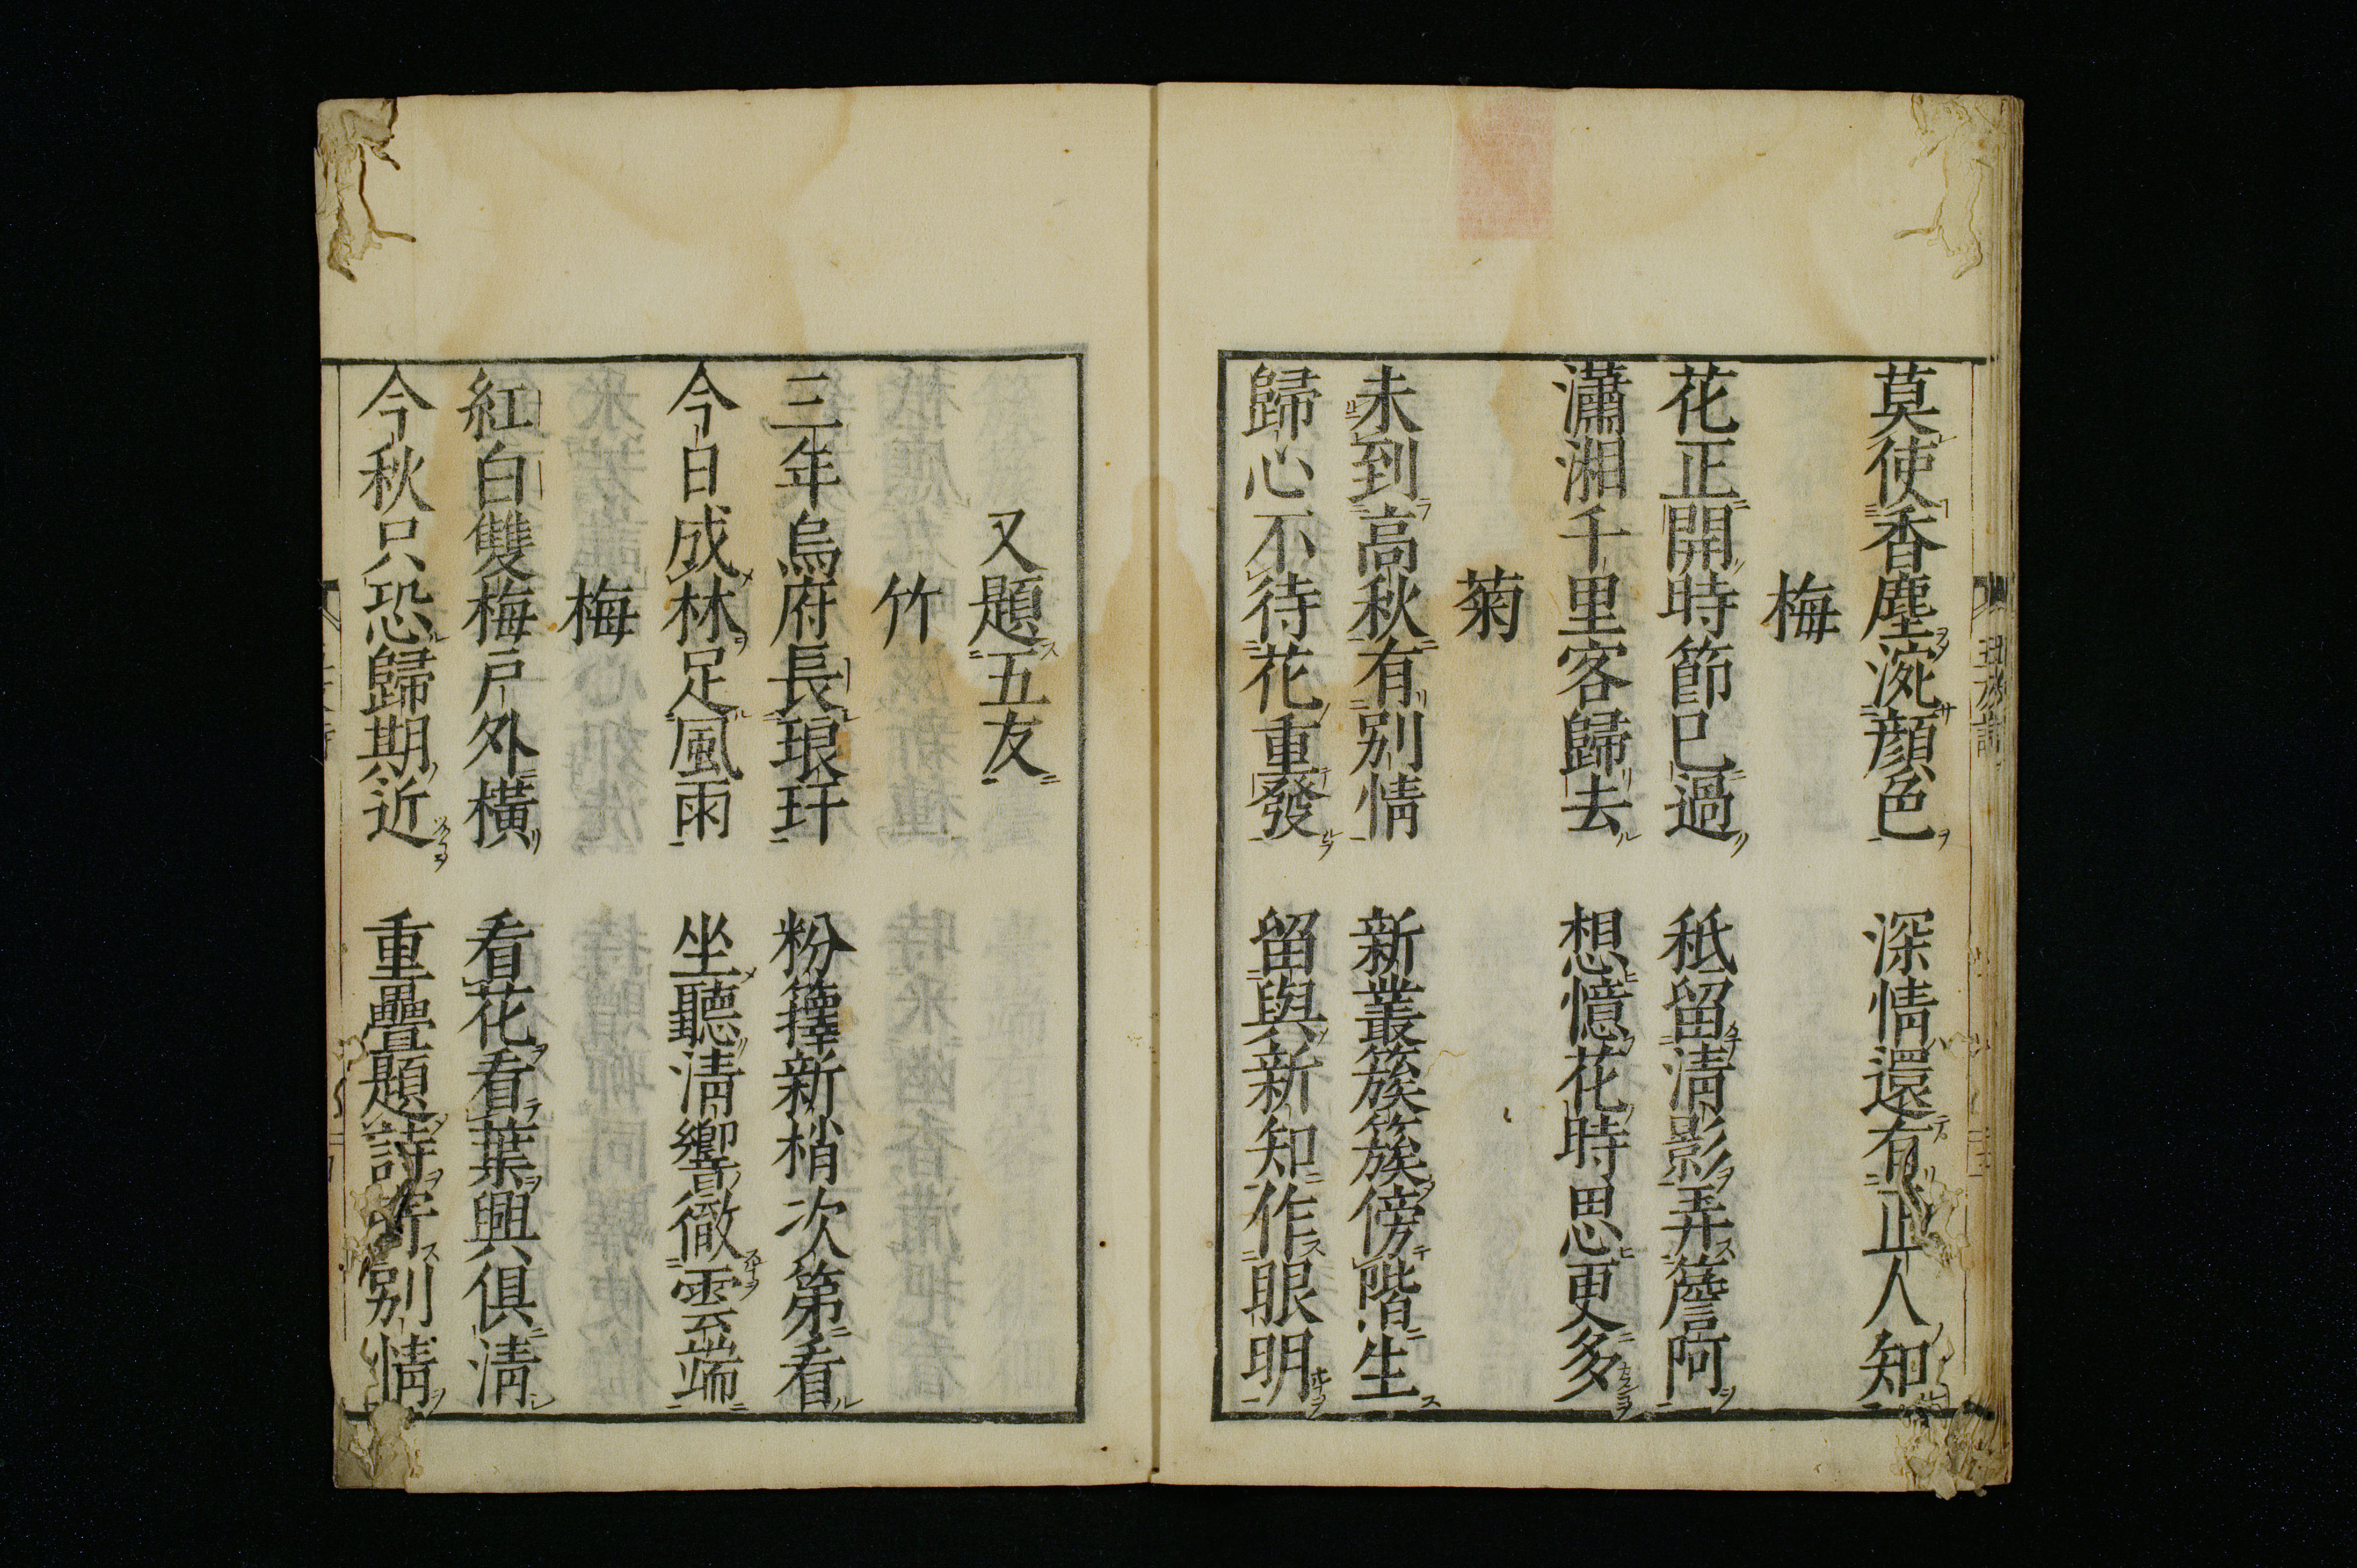 莫使香塵涴顔色　深情還有正人知
梅
花正開時節已過　秪留清影弄簷阿
瀟湘千里客歸去　想憶花時思更多
菊
未到高秋有別情　新叢簇簇傍階生
歸心不待花重發　留與新知作眼明
又題五友
竹
三年烏府長琅玕　粉籜新梢次第看
今日成林足風雨　坐聽清響徹雲端
梅
紅白雙梅戸外橫　看花看葉興俱清
今秋只恐歸期近　重疊題詩寄別情